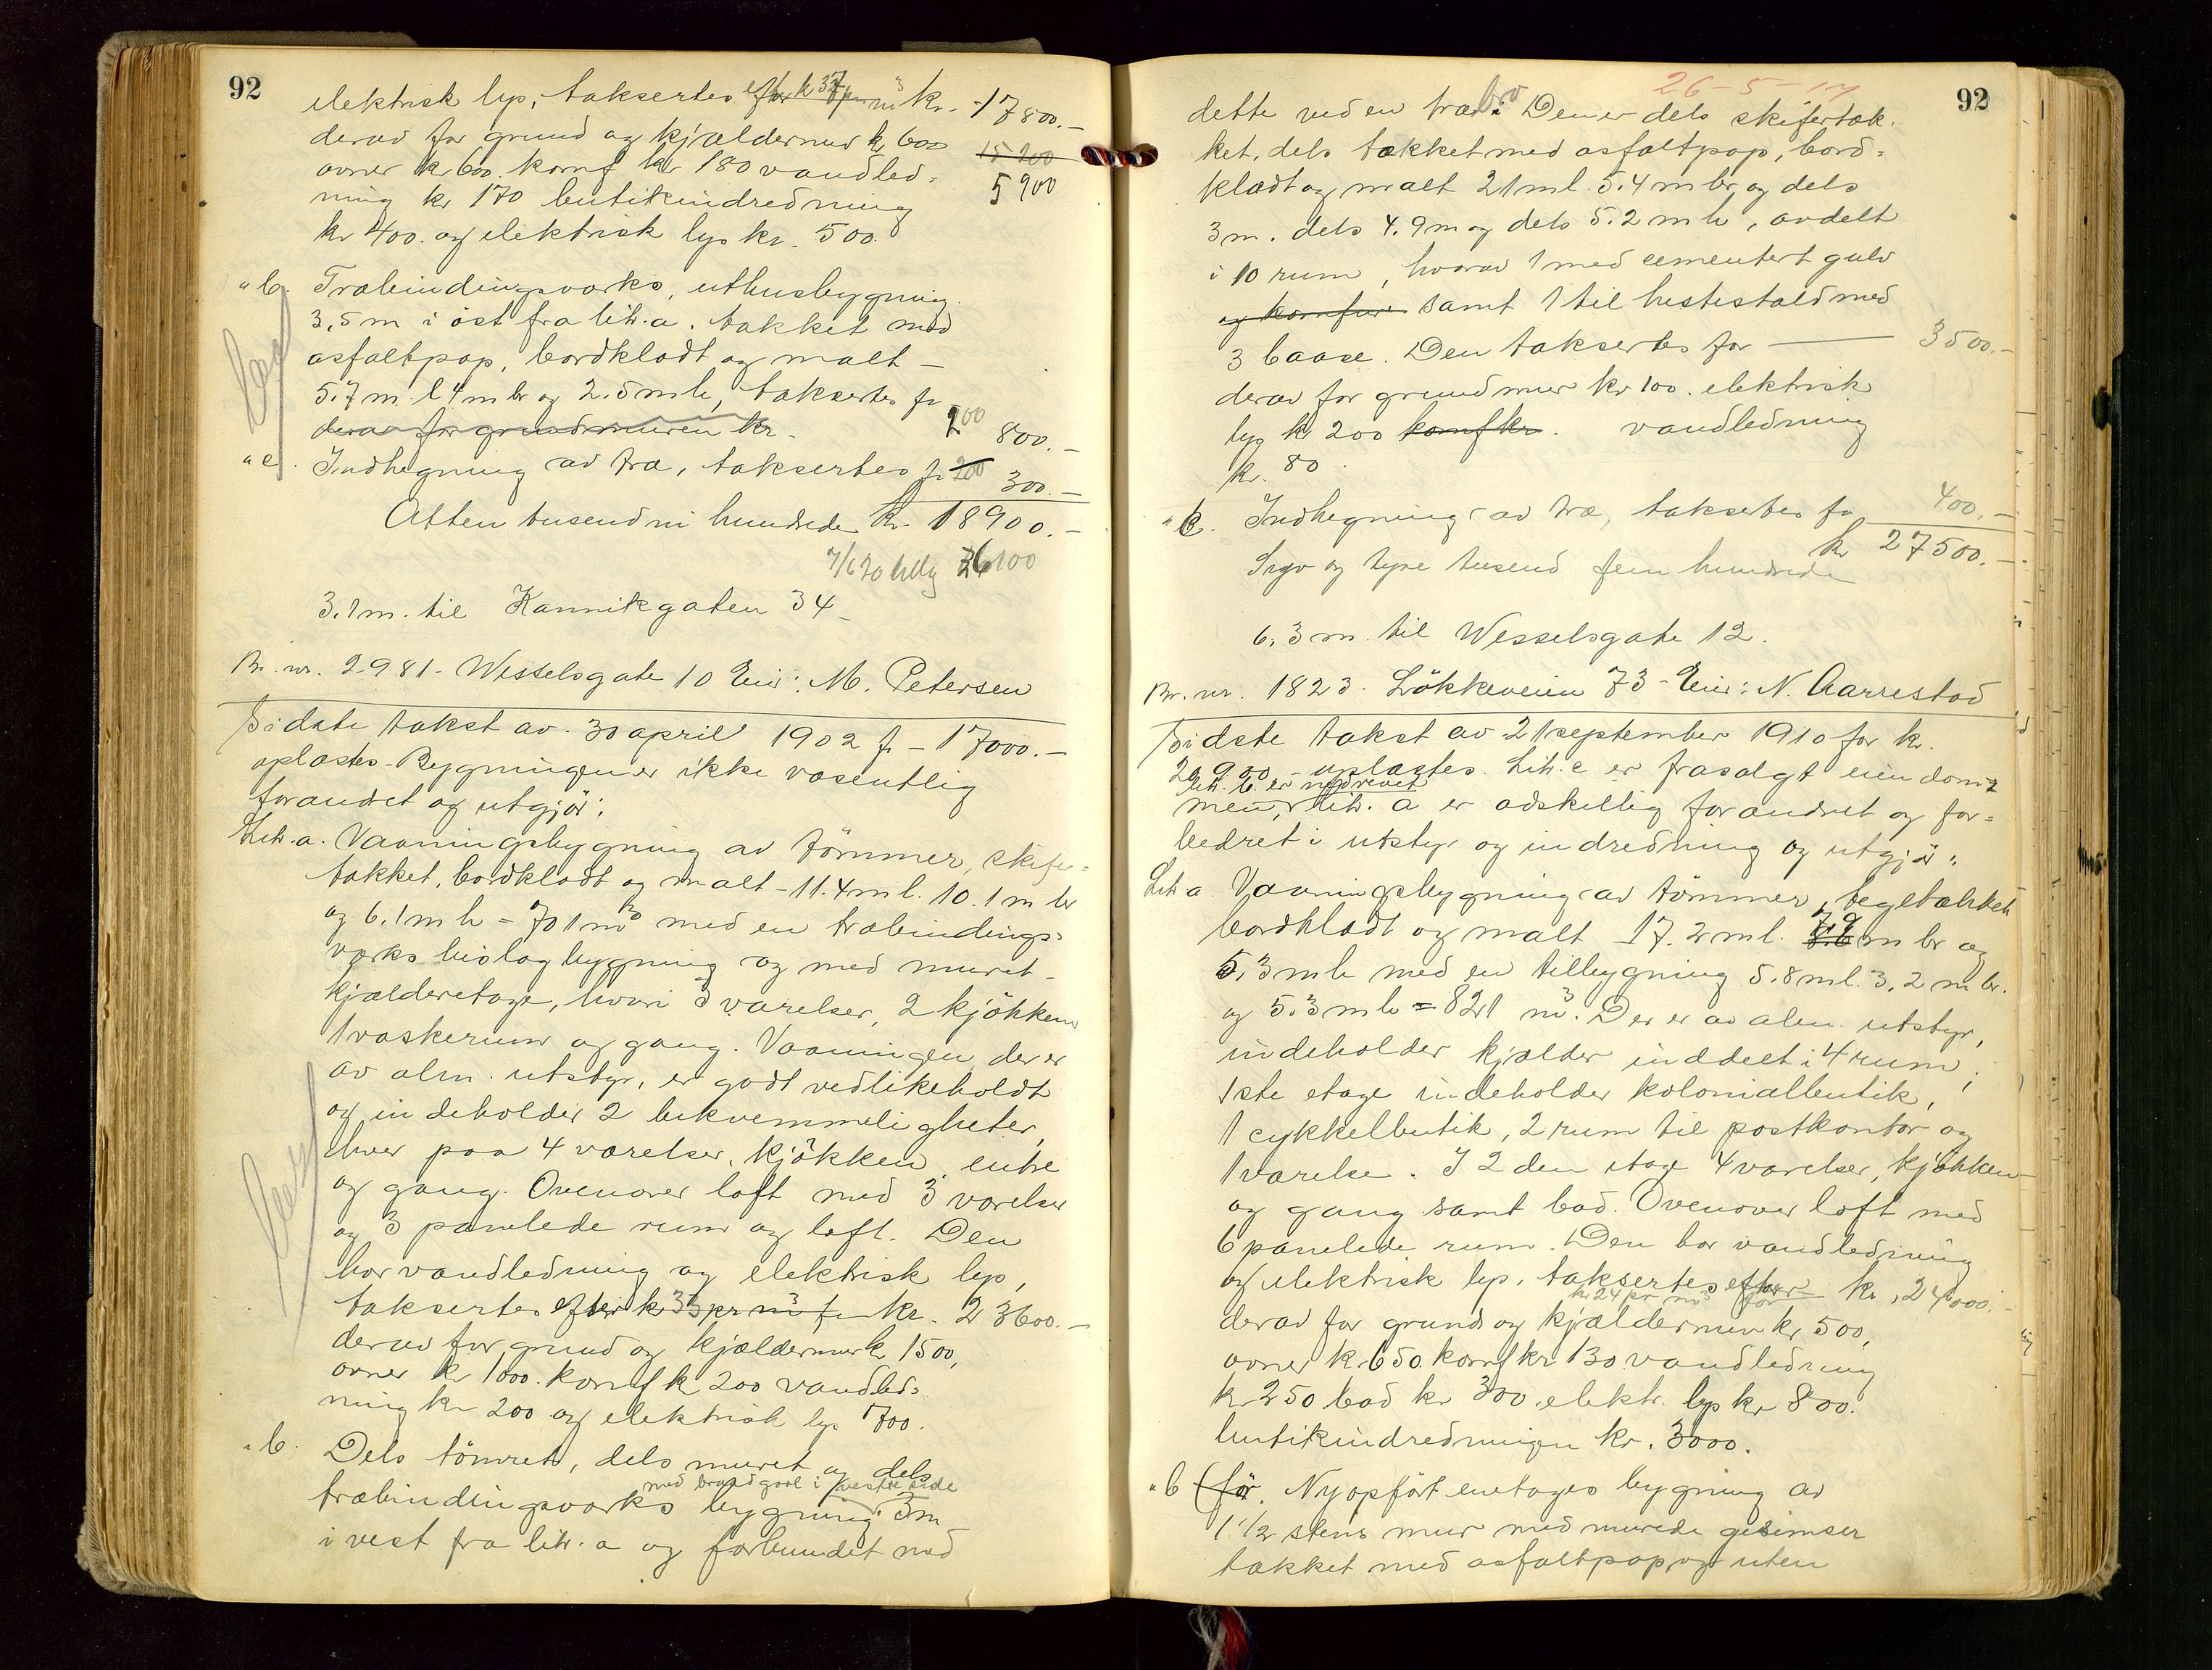 92
elektrisk lys, taksertes efter k 37 pr m³ kr. 17800.-
derav for grund og kjældermur k 600 15200
ovner kr 600. komf kr 180 vandled- 5900
ning kr 170 butikindredning
kr 400. og elektrisk lys kr. 500.
"b. Træbindingsværks, uthusbygning
3,5 m i øst fra litr. a. tækket med
asfaltpap, bordklædt og malt -
5.7 m l 4 m br og 2.5 m h, taksertes fr 200 800.-
derav for grundmuren kr.
"c. Indhegning av træ, taksertes fr 200 300.-
Atten tusend ni hundrede kr. 18900.-
7/6 20 26100
3.1 m. til Kannikgaten 34 -
Br. nr. 2981 - Wesselsgate 10 Eier: M. Petersen
Sidste takst av. 30 april 1902 fr - 17000.-
oplæstes. Bygningen er ikke væsentlig
forandret og utgjör:
Litr. a. Vaaningsbygning av tömmer, skifer-
tækket, bordklædt og malt - 11.4 m l. 10.1 m br
og 6.1 m h = 701 m³ med en træbindings-
værks bislagbygning og med muret -
kjælderetage, hvori 3 værelser, 2 kjökken
1 vaskerum og gang. Vaaningen, der er
av alm. utstyr, er godt vedlikeholdt
og indeholder 2 bekvemmeligheter,
hver paa 4 værelser, kjökken, entre
og gang. Ovenover loft med 3 værelser
og 3 panelede rum og loft. Den
har vandledning og elektrisk lys,
taksertes efter kr 33 pr m³ for kr. 23600.-
derav for grund og kjældermur kr 1500,
ovner kr 1000. komf k 200 vandled-
ning kr 200 og elektrisk lys 700.
"b. Dels tömret, dels muret og dels
med brandgavl i vestre side
træbindingsværks bygning 3 m
i vest fra litr. a og forbundet med
26-5-17
92
dette ved en træbro Den er dels skifertæk-
ket, dels tækket med asfaltpap, bord-
klædt og malt 21 m l. 5.4 m br og dels
3 m. dels 4.9 m og dels 5.2 m h, avdelt
i 10 rum, hvorav 1 med cementert gulv
og komfur samt 1 til hestestald med
3 baase. Den taksertes for 3500.-
derav for grundmur kr 100. elektrisk
lys kr 200 komf kr. vandledning
kr. 80.
"c. Indhegning av træ, taksertes for 400.-
kr 27500.-
Syv og tyve tusend fem hundrede
6.3 m. til Wesselsgate 12.
Br. nr. 1823. Lökkeveien 73 - Eier: N. Aarrestad
Sidste takst av 21 september 1910 for kr.
20900 - oplæstes. Litr. c er frasolgt eiendom-
Litr. b. er nedrevet
men, litr. a er adskillig forandret og for-
bedret i utstyr og indredning og utgjör:
Litr a. Vaaningsbygning av tömmer, tegltækket
bordklædt og malt 17.2 m l. 7.9 m br og
5.3 m h med en tilbygning 5.8 m l. 3.2 m br.
og 5.3 m h = 821 m³. Der er av alm. utstyr,
indeholder kjælder inddelt i 4 rum;
1ste etage indeholder kolonialbutik,
1 cykkelbutik, 2 rum til postkontor og
1 værelse. I 2 den etage 4 værelser, kjökken
og gang samt bad. Ovenover loft med
6 panelede rum. Den har vandledning
og elektrisk lys, taksertes efter kr. 24000.-
kr 24 pr m³ for
derav for grund og kjældermur kr 500,
ovner kr 650. komf kr 130 vandledning
kr 250 bad kr 300 elektr. lys kr 800.
butikindredningen kr. 3000.
"b (för. Nyopfört enetages bygning av
1 1/2 stens mur med murede gesimser
tækket med asfaltpap og uten